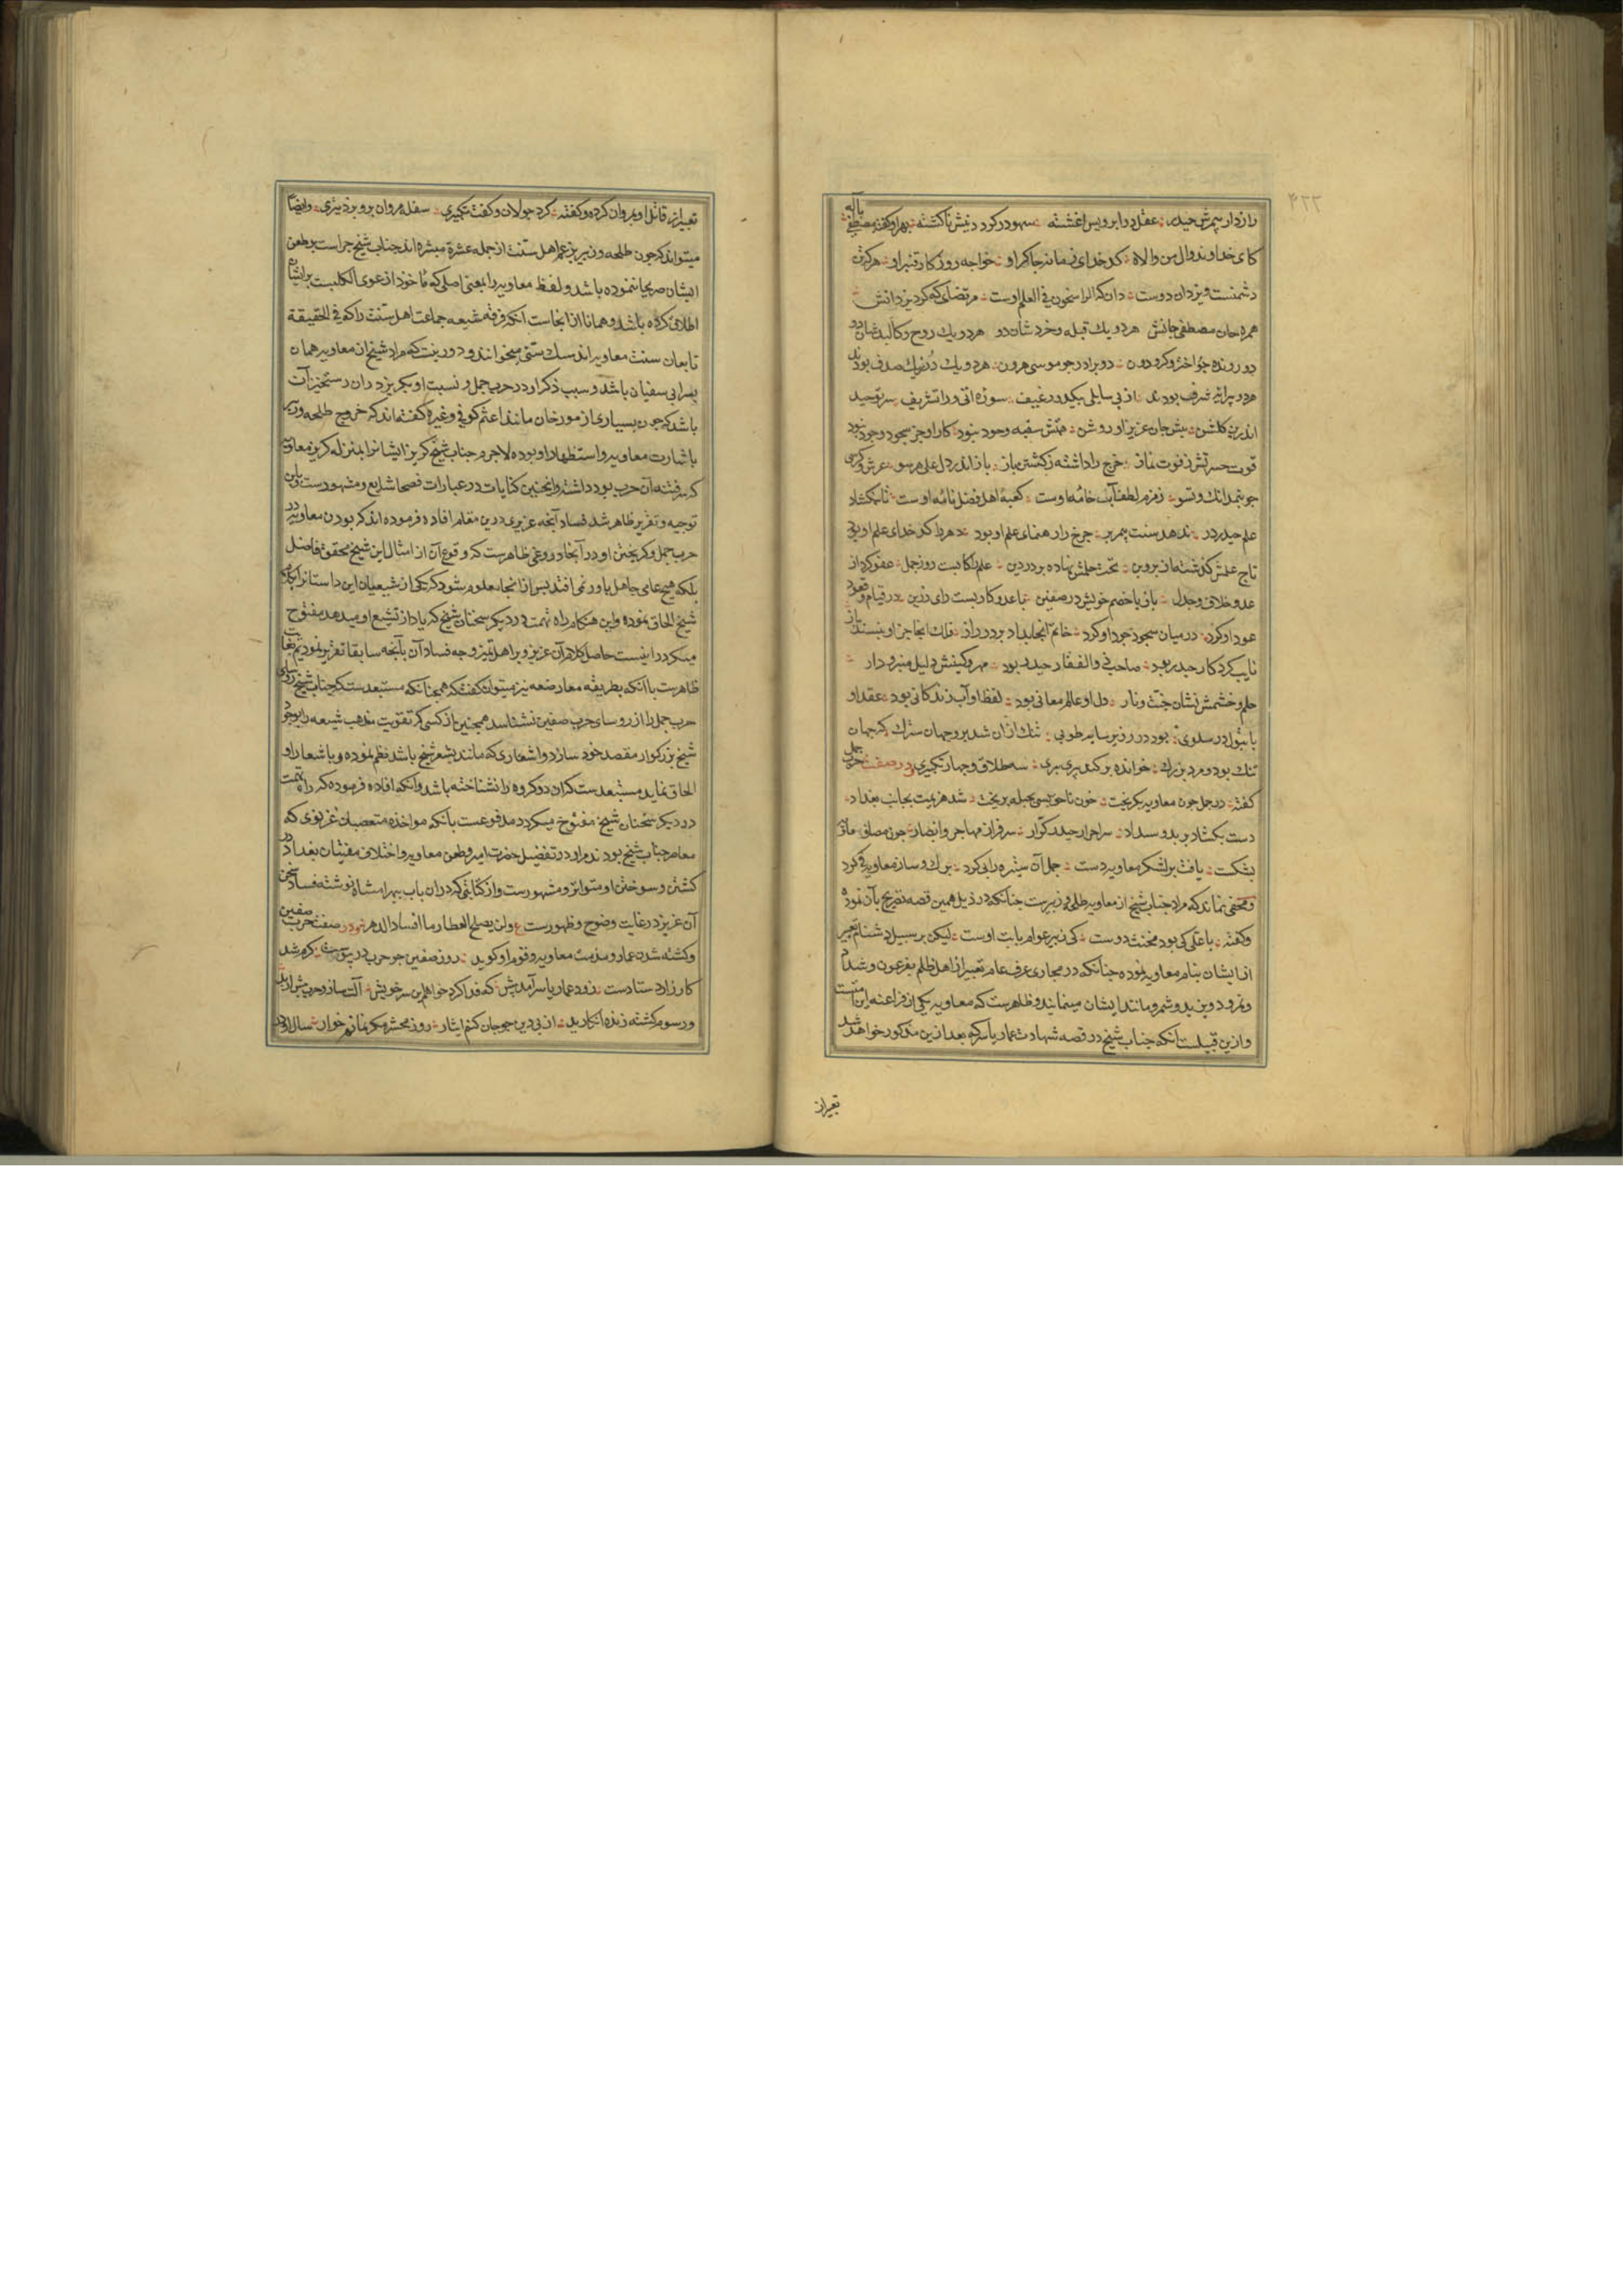 ۴۲۲
راز دار پیمبرش حیدر عقل در ابرویس اغشته سهو در گرد دینش ناگشته بهر او گفته مصطفی باله
کای خداوند وال من والاه کدخدای زمانه چاکر او خواجه روزگار قنبر او هرکه تن
دشمنست و یزدان دوست دان که الراسخون فی العلم اوست مرتضای که کرد یزدانش
همره جان مصطفی جانش هر دو یک قبله و خردشان دو هر دو یک روح و کالبدشان دو
دو رونده چو اختر و گردون دو برادر چو موسی هرون هر دو یک در ز یک صدف بودند
هر دو پیرایه شرف بودند از پی سایلی بیک دو رغیف سوره هل اتی در اتشریف سر توحید
اندرین گلشن پیش جان عزیز او روشن کار او جز سجود و جود نبود
قوت حسرتش ز فوت نماز چرخ را داشته ز گشتن باز باز اندر دل علی مرسو عرش و کرسی
چو بنمدانک و تسو زمزم لطف آب خامه اوست کعبه اهل فضل نامه اوست تا بنگشاد
علم حیدر در ندهد سنت پیمبر بر چرخ را رهنمای علم او بود هر کدخدای علم او بود
تاج علمش گذشته از پروین تخت حلمش نهاده بر در دین روز جمل عفو کرد از
عدو خلاف و جدل باز با خصم خویش در صفین با عدو کار بست رای رزین در قیام و قعود
عود او کرد در میان سجود جود او کرد خاتم انجا بداد بر در راز
نایب کردگار حیدر بود صاحب ذوالفقار حیدر بود مهر و کینش دلیل منبر و دار
حلم و خشمش نشان جنت و نار دل او عالم معانی بود لفظ او آب زندگانی بود عقد او
با بتول در سلوی بود در زیر سایه طوبی تنک ازان شد برو جهان سترک که جهان
تنک بود و مرد بزرک خوانده بر کنده پری بری سه طلاق و چهار تکبیری و در صفت حرب جمل
گفته در جمل چون معاویه بگریخت خون ناحق بسی بحیله بریخت شد هزیمت بجانب بغداد
دست بگشاد بر بد و بیداد سر احرار حیدر کرار سرفراز مهاجر و انصار
بشکست یافت بر لشکر معاویه دست جمل آن ستیزه را پی کرد برک و ساز معاویه فی کرد
و مخفی نماند که مراد جناب شیخ از معاویه طلحه و زبیرست چنانکه در ذیل همین قصه تصریح بآن نموده
و گفته با علی کی بود مخنث دوست کی زبیر عوام بابت اوست لیکن بر سبیل دشنام تعبیر
از ایشان بنام معاویه نموده چنانکه در مجاری عرف عام تعبیر از اهل ظلم بفرعون و شداد
و نمرود و یزید و شمر و مانند ایشان مینمایند و ظاهرست که معاویه یکی از فراعنه این امتست
و ازین قبیلست آنکه جناب شیخ در قصه شهادت عمار یاسر که بعد ازین مذکور خواهد شد
تعبیر از
تعبیر از قاتل او بمروان کرده و گفته کرد جولان و گفت تکبیری سفله مروان برو بزد تیری و ایضا
میتواند که چون طلحه و زبیر بزعم اهل سنت از جمله عشره مبشره اند جناب شیخ جراست بر طعن
ایشان صریحا ننموده باشد و لفظ معاویه را بمعنی اصلی که ماخوذ از عوی الکلبست بر ایشان
اطلاق کرده باشد و همانا از اینجاست آنکه فرقه شیعه جماعت اهل سنت را که فی الحقیقة
تابعان سنت معاویه اند سک سنی میخوانند و دور نیست که مراد شیخ از معاویه همان
پسر ابی سفیان باشد و سبب ذکر او در حرب جمل و نسبت او بگریز دران رستخیز آن
باشد که چون بسیاری از مورخان مانند اعثم کوفی و غیره گفته اند که خروج طلحه و زبیر
باشارت معاویه و استظهار او بوده لاجرم جناب شیخ گریز ایشانرا بمنزله گریز معاویه
که سر فتنه آن حرب بود داشته و اینچنین کنایات در عبارات فصحا شایع و مشهورست و باین
توجیه و تقریر ظاهر شد فساد آنچه عزیزی درین مقام افاده فرموده اند که بودن معاویه در
حرب جمل و گریختن او در آنجا دروغی ظاهرست که وقوع آن از امثال این شیخ محقق فاضل
بلکه هیچ عامی جاهل باور نمی افتد پس از اینجا معلوم شود که یکی از شیعیان این داستانرا بکتاب
شیخ الحاق نموده و این هنگام راه تهمت در دیگر سخنان شیخ که یاد از تشیع او میدهد مفتوح
میگردد اینست حاصل کلام آن عزیز و بر اهل تمیز وجه فساد آن بآنچه سابقا تقریر نمودیم بغایت
ظاهرست با آنکه بطریقه معارضه نیز میتوان گفت که همچنانکه مستبعدست که جناب شیخ روسای
حرب جمل را از روسای حرب صفین نشناسد همچنین از کسی که تقویت مذهب شیعه را بوجود
شیخ بزرگوار مقصد خود سازد و اشعاری که مانند بشعر شیخ باشد نظم نموده و باشعار او
الحاق نماید مستبعدست که آن دو گروه را نشناخته باشد و آنکه افاده فرموده که راه تهمت
در دیگر سخنان شیخ مفتوح میگردد مدفوعست بآنکه مواخذه متعصبان غزنوی که
معاصر جناب شیخ بودند مر او در تفضیل حضرت امیر و طعن معاویه و اختلاف مفتیان بغداد در
کشتن و سوختن او متواتر و مشهورست و از کتابتی که دران باب ببهرامشاه نوشته فساد سخن
آن عزیز در غایت وضوح و ظهورست ع ولن یصلح العطار ما افسد الدهر و در صفت حرب صفین
و کشته شدن عمار و مذمت معاویه و قوم او گوید روز صفین چو حرب در پیوست گرم شد
کارزار دستادست زود عمار یاسر آمد پیش که فدا کرد خواهم این سر خویش
و رسوم کشته زنده انگارید از پی دین چو جان کنم ایثار روز محشر مگر نمانم خوار